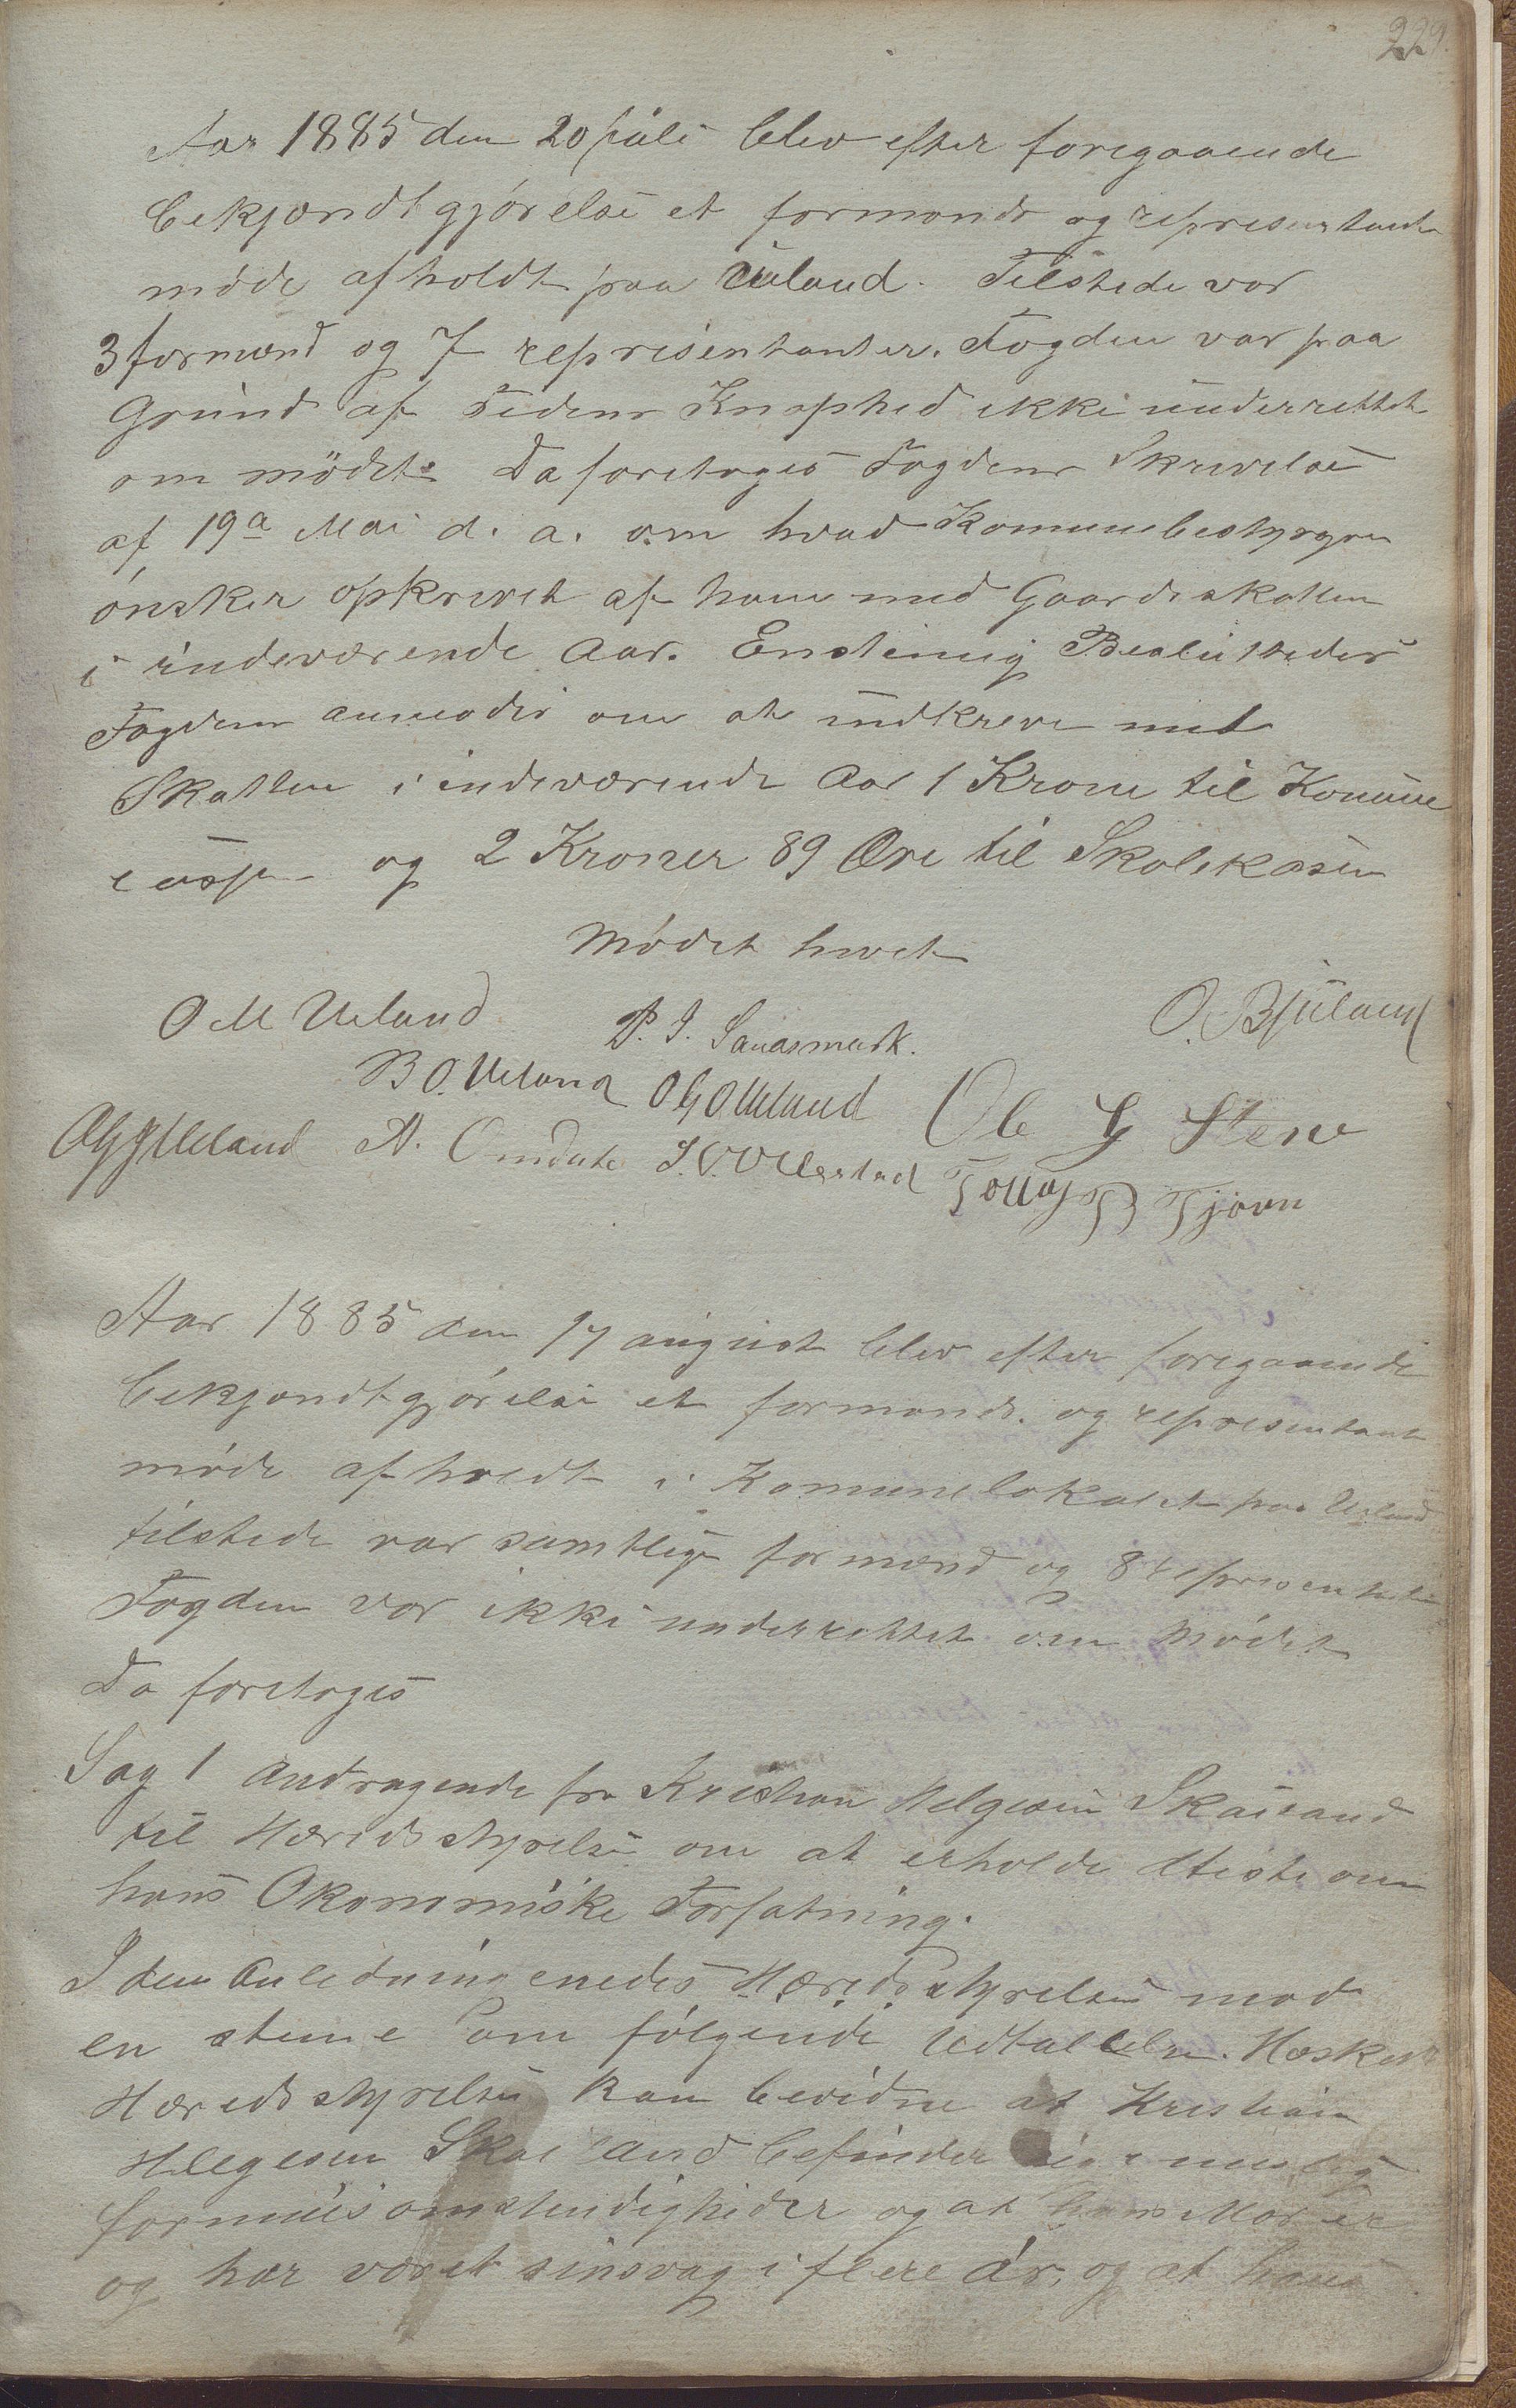 229.
Aar 1885 den 20 juli blev efter foregaaende
bekjændtgjørelse et formands og representant
møde afholdt paa Ueland. Tilstede var
3 formænd og 7 representanter. Fogden var paa
Grund af Tidens Knaphed ikke underrettet
om mødet. Da foretoges Fogdens Skrivelse
af 19a Mai d. a. om hvad Komunebestyren
ønsker opkrevet af ham med Gaardskatten
i indeværende Aar. Enstemig Besluttedes
Fogden anmodes om at indkreve med
Skatten i indeværende Aar 1 Krone til Komune
og 2 Kroner 89 Øre til Skolekassen
Mødet hevet
O M Ueland P. I. Saudsmark. O. Bjuland
B O. Ueland O G O Ueland Ole G Stene
O G J Ueland A. Omdale I. O. Ollestad Tollag B Tjørn
Aar 1885 den 17 august blev efter foregaaende
bekjændtgjørelse et formands. og representant
møde afholdt i Komunelokalet paa Ueland
tilstede var samtlige formænd og 8 representanter
Fogden var ikke underrettet om Mødet
Da foretoges
Sag 1 Andragende fra Kristian Helgesen Skaaland
til Heredsstyrelse om at erholde Atteste om
hans Økonomiske Forfatning.
I den Anledning enedes Heredsstyrelsen mod
en steme om følgende Udtallelse. Heskest
Heredsstyrelse kan bevidne at Kristian
Hlegesen Skaaland befinder sig i
formuesomstendigheder og at hans Mor er
og har været sinsvag i flere år, og at hans